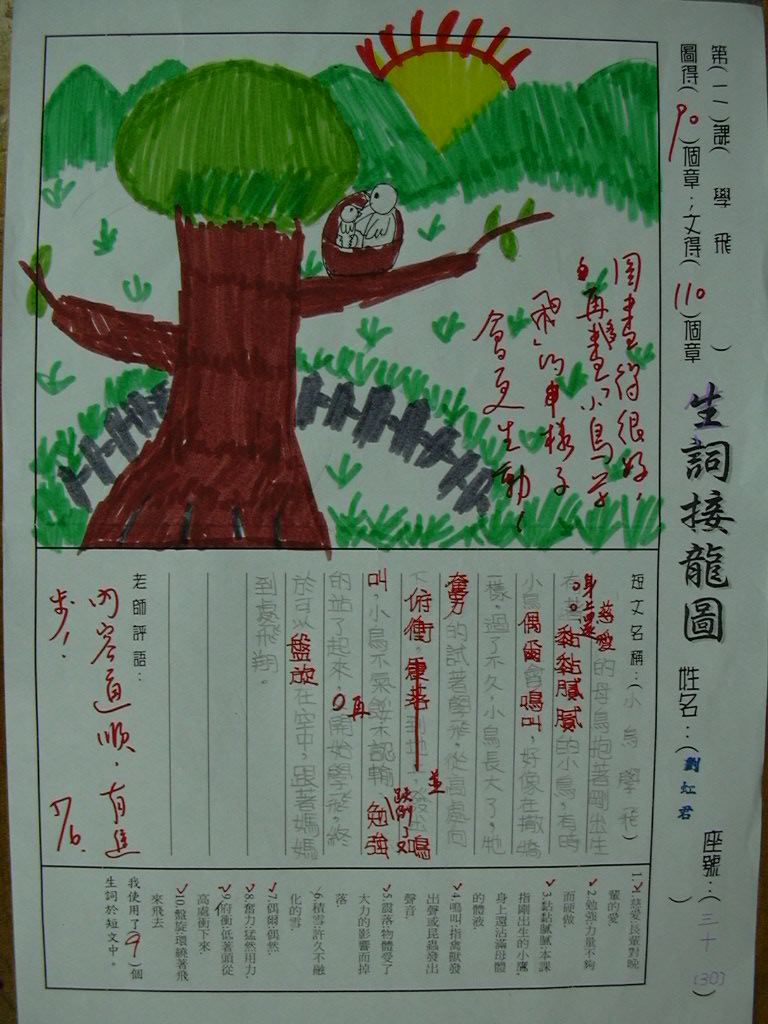 第(二)課( 學 飛 )
圖得( 90 )個章;文得( 110 )個章
生詞接龍圖 姓名:( 劉虹君 ) 座號:( 三十 (30) )
圖畫得很好,
再畫「小鳥学
飛」的
樣子
會更生動!
短文名稱:( 小鳥學飛 )
慈愛的母鳥抱著剛出生
身上還
黏黏膩膩的小鳥,有時
小鳥偶爾會鳴叫,好像在撒嬌
一樣,過了不久,小鳥長大了,牠
奮力的試著學飛,從高處向
下俯衝,震落到地上,發出鳴
並跌倒了又
叫,小鳥不氣餒不認輸,勉強
的站了起來。再開始學飛,終
於可以盤旋在空中,跟著媽媽
到處飛翔。
老師評語:
內容通順,有進
步!
5/6.
1.慈愛:長輩對晚
輩的愛
2.勉強:力量不夠
而硬做
3.黏黏膩膩:本課
指剛出生的小鷹,
身上還沾滿母體
的體液
4.鳴叫:指禽獸發
出聲或昆蟲發出
聲音.
5.震落:物體受了
大力的影響而掉
落
6.積雪:許久不融
化的雪
7.偶爾:偶然.
8.奮力:猛然用力.
9.俯衝:低著頭從
高處衝下來.
10.盤旋:環繞著飛
來飛去
我使用了( 9 )個
生詞於短文中。